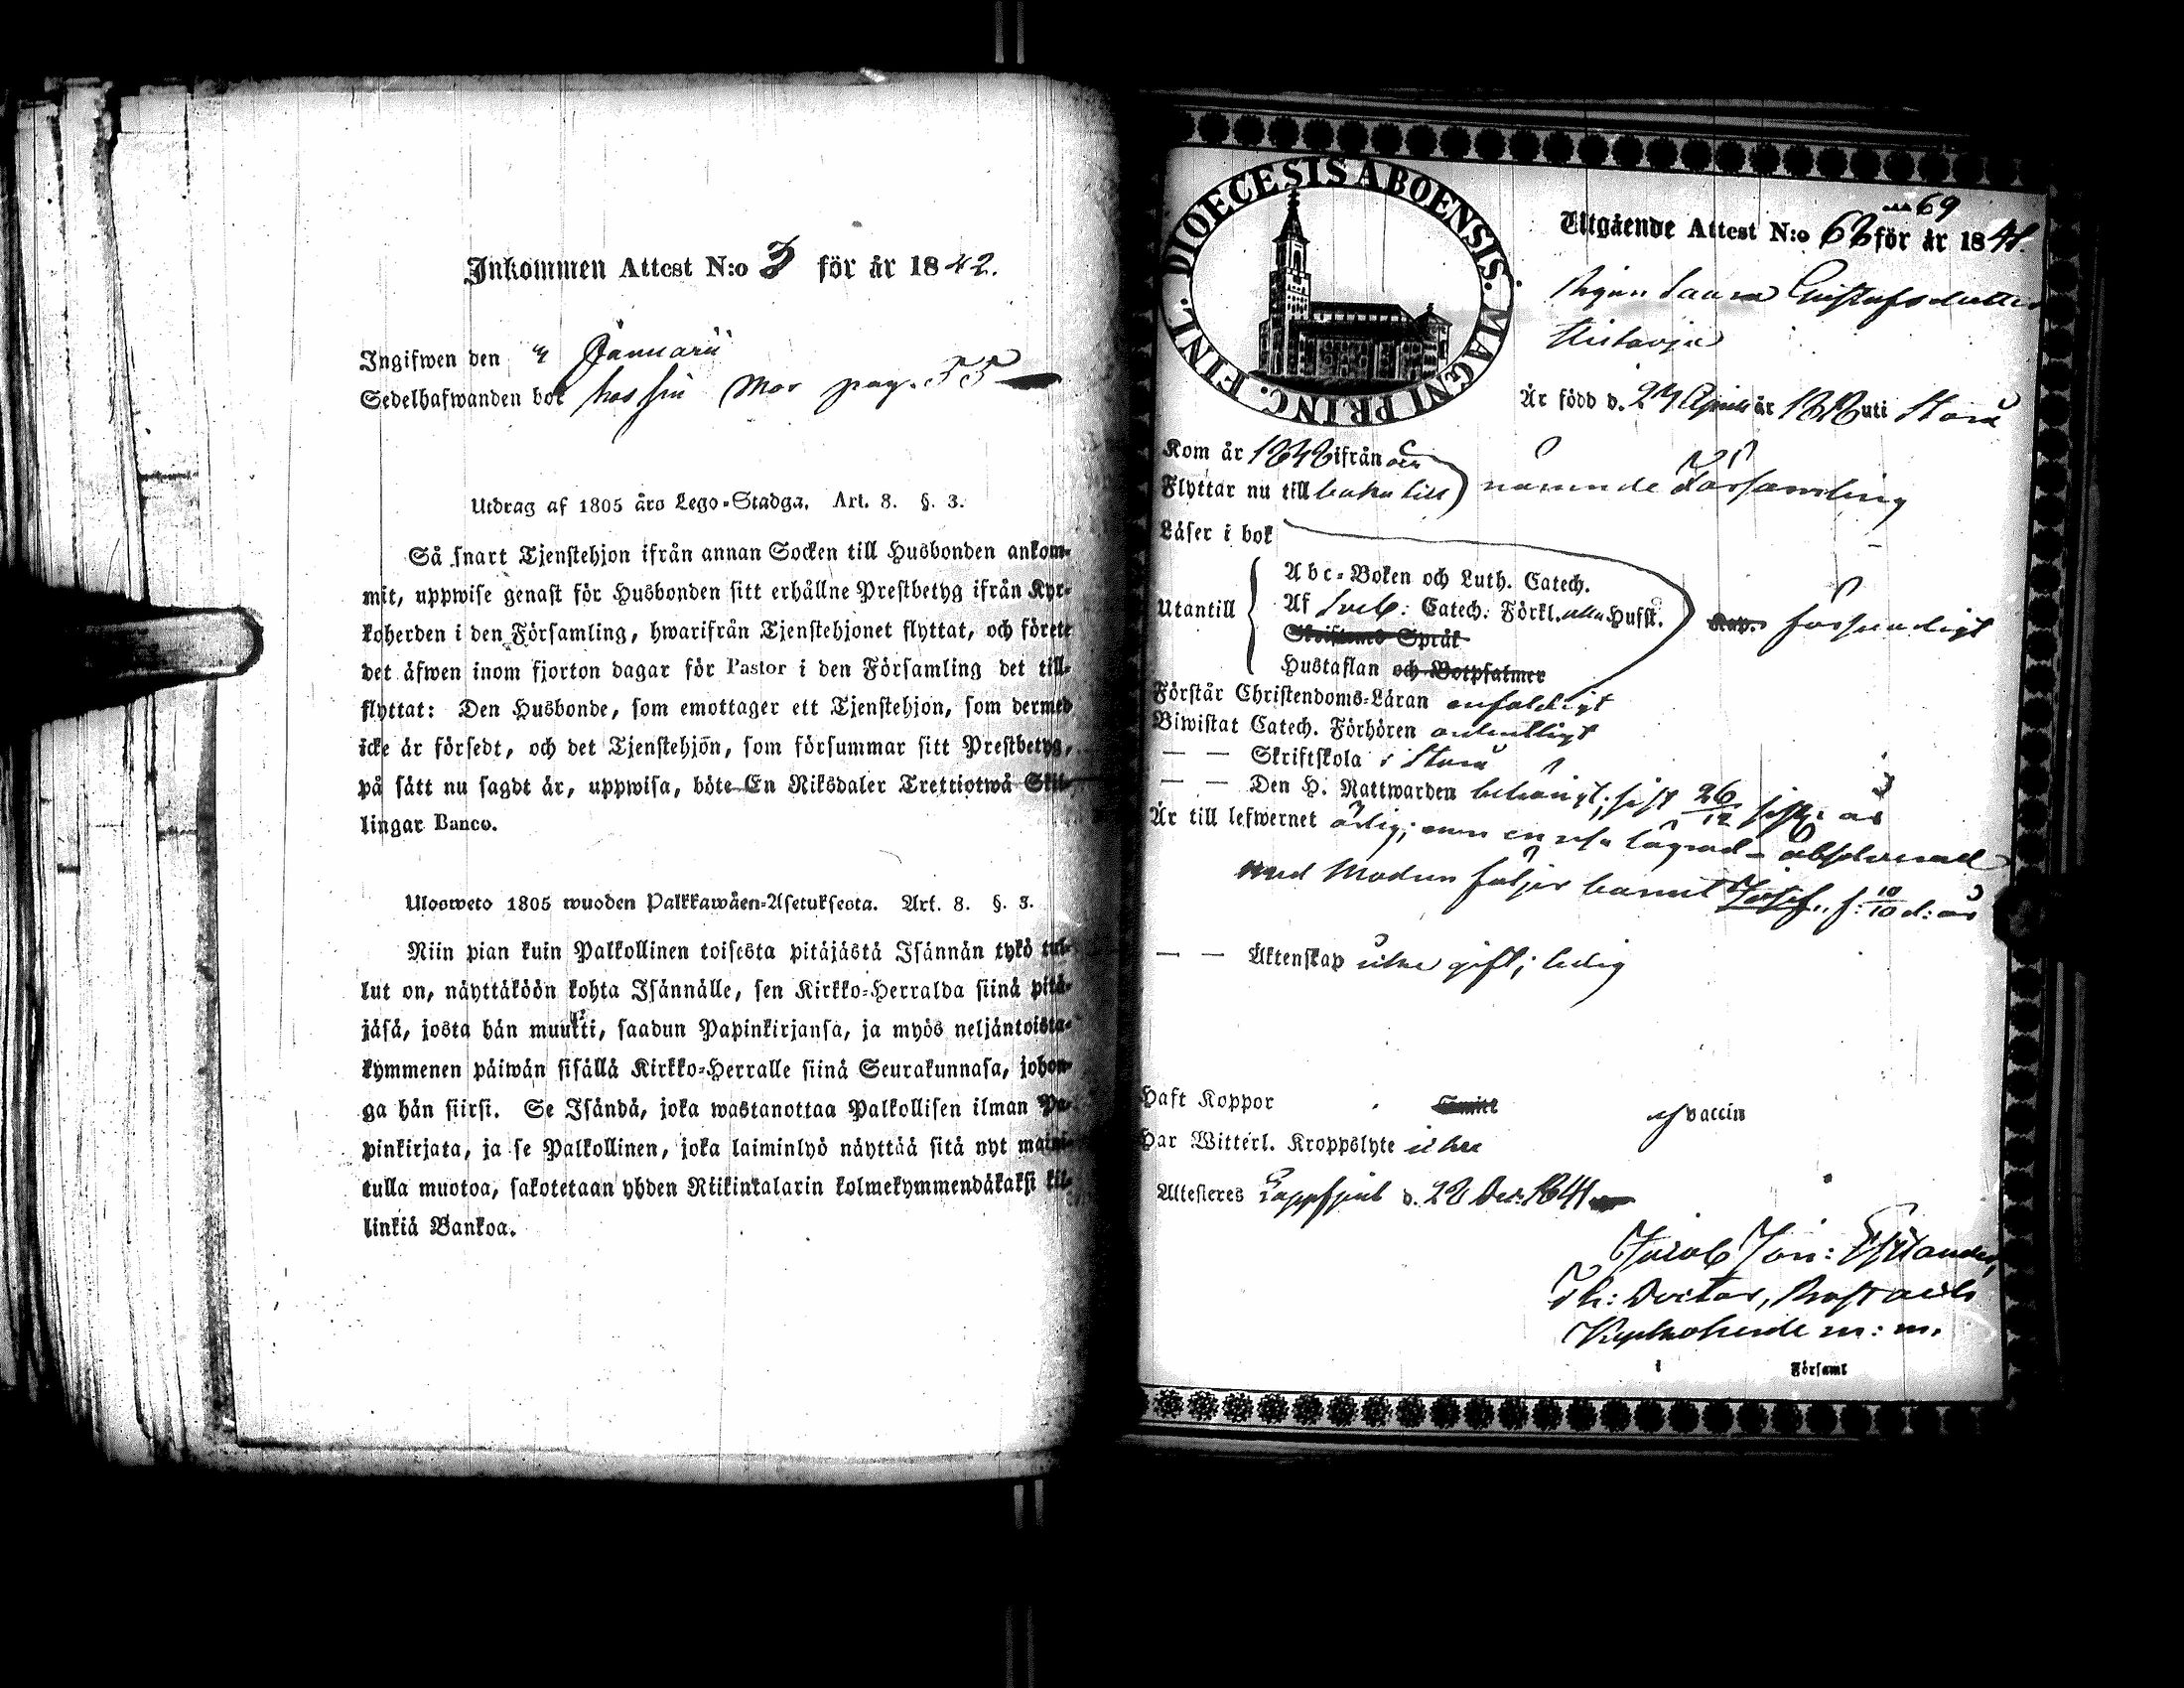 Inkommen Attest N:o 3 för år 1842.
Ingifwen den 4 Januarii
Sedelhafwanden bor hos sin Mor pag. 55
Utdrag af 1805 års Lego-Stadga. Art. 8. §. 3.
Så snart Tjenstehjon ifrån annan Socken till Husbonden ankom-
mit, uppwise genast för Husbonden sitt erhållne Prestbetyg ifrån Kyr-
koherden i den Församling, hwarifrån Tjenstehjonet flyttat, och förete
det äfwen inom fjorton dagar för Pastor i den Församling det till-
flyttat: Den Husbonde, som emottager ett Tjenstehjon, som dermed
icke är försedt, och det Tjenstehjon, som försummar sitt Prestbetyg,
på sätt nu sagdt är, uppwisa, böte En Riksdaler Trettiotwå Skil-
lingar Banco.
Ulosweto 1805 wuoden Palkkawäen-Asetuksesta. Art. 8. §. 3.
Niin pian kuin Palkollinen toisesta pitäjästä Isännän tykö tul-
lut on, näyttäköön kohta Isännälle, sen Kirkko-Herralda siinä pitä-
jäsä, josta hän muutti, saadun Papinkirjansa, ja myös neljäntoista-
kymmenen päiwän sisällä Kirkko-Herralle siinä Seurakunnasa, johon-
ga hän siirsi. Se Isändä, joka wastanottaa Palkollisen ilman Pa-
pinkirjata, ja se Palkollinen, joka laiminlyö näyttää sitä nyt maini-
tulla muotoa, sakotetaan yhden Riikintalarin kolmekymmendäkaksi kil-
linkiä Bankoa.
DIOECESIS ABOENSIS. MAGNI PRINC. FINL.
Utgående Attest N:o 68 och 69 för år 1841.
Pigan Laura Gustafsdotter
Är född d. 24 April år 1818 uti
Kom år 1838 ifrån och
Flyttar nu till baka till nämnde Församling
Läser i bok
Utantill
Abc-Boken och Luth. Catech.
Af Sveb: Catech. Förkl. utan Hufst.
Skriftenes Språk
Hustaflan och Botpsalmer
Kap. försvarligt
Förstår Christendoms-Läran enfaldigt
Biwistat Catech. Förhören ordentligt
— — Skriftskola i
— — Den H. Nattwarden behörigt; sist 26/12 sistl: år
Är till lefwernet ärlig; men en resa lägrad - absolverad
med Modren följer barnet Josef, f: 10/10 d: år
— — Äktenskap icke gift; ledig
Haft Koppor vaccin
Har Witterl. Kroppslyte icke
Attesteres d. 28 Dec: 1841
Jacob Jon:
Th: Doctor, Prost och
Kyrkoherde m: m.
i Församl